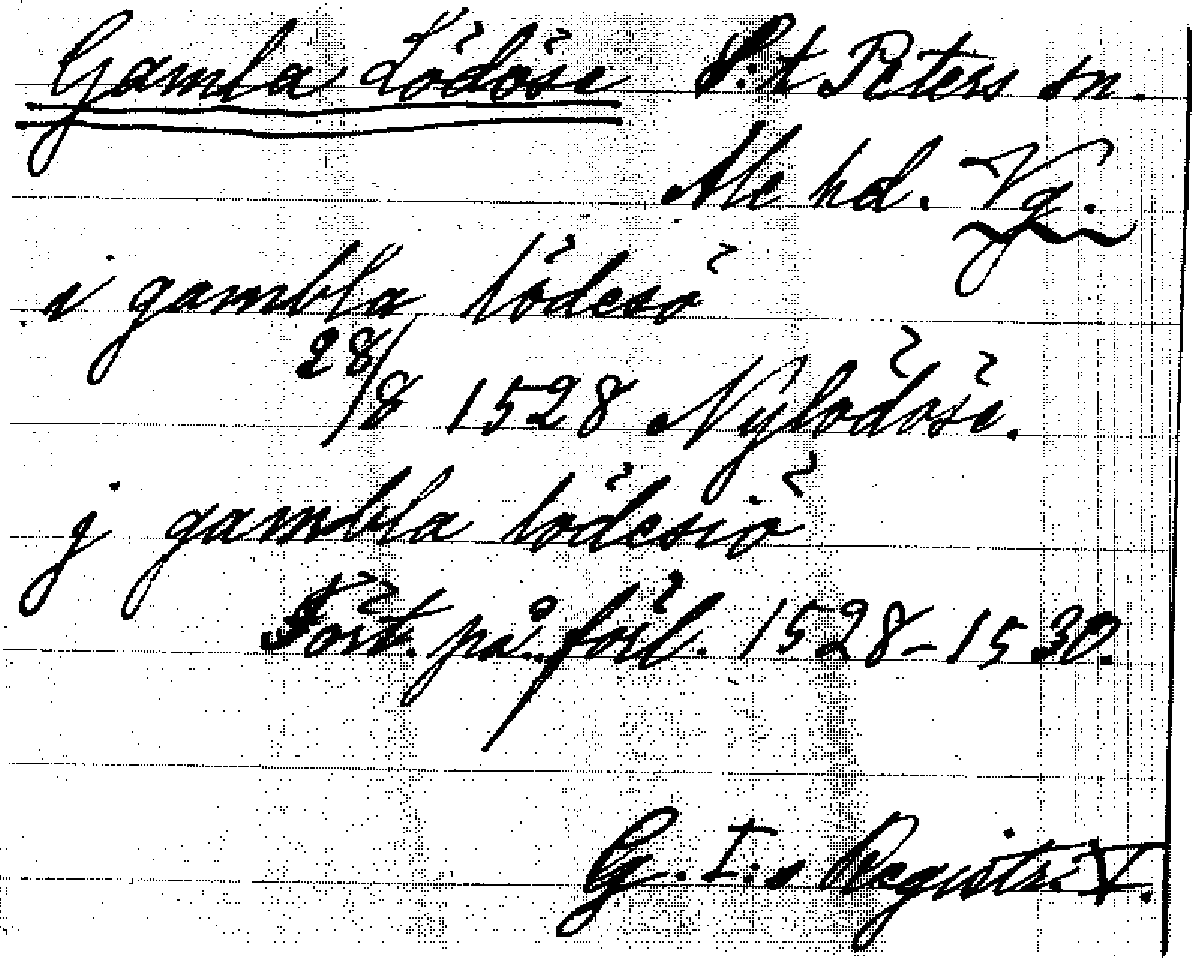 Gamla Lödöse S:t Peters sn.
Ale hd. Vg.
i gambla lödesö
28/8 1528 Nylödöse.
j gambla lödesiö
Fört. på förl. 1528-1530.
G. I:s Registr. V.